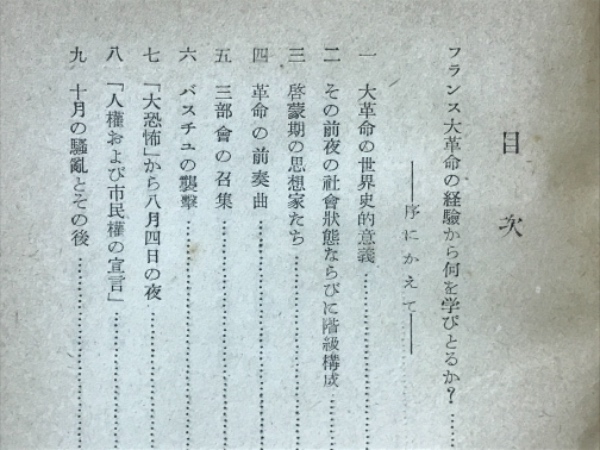 目次
フランス大革命の経験から何を学びとるか？……
――序にかえて――
一 大革命の世界史的意義……
二 その前夜の社會狀態ならびに階級構成……
三 啓蒙期の思想家たち……
四 革命の前奏曲……
五 三部會の召集……
六 バスチユの襲擊……
七 「大恐怖」から八月四日の夜……
八 「人權および市民權の宣言」……
九 十月の騷亂とその後……